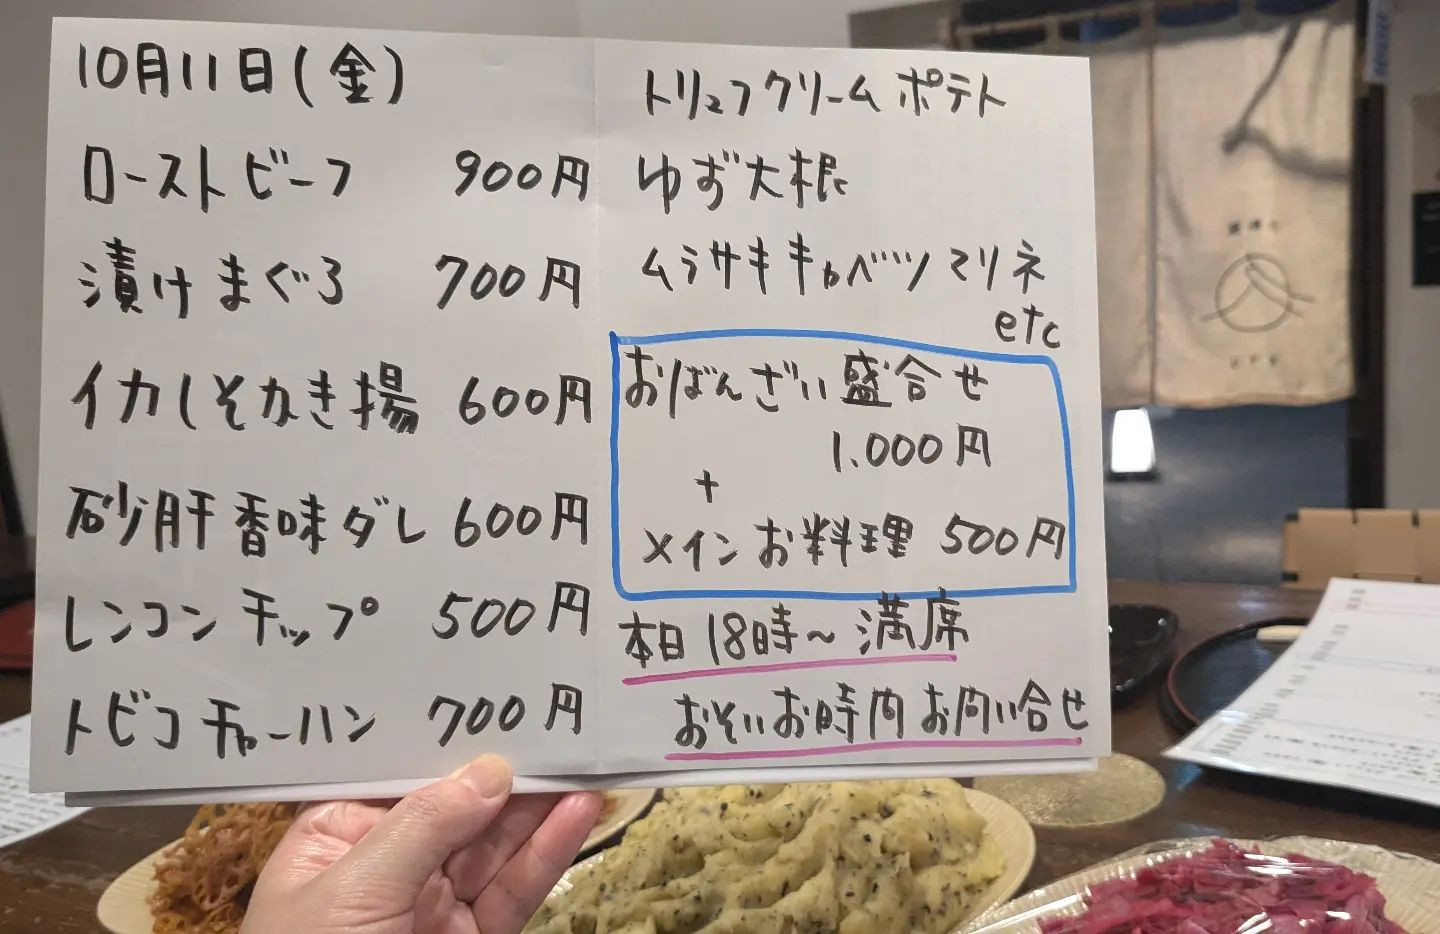 10月11日(金)
ローストビーフ 900円
漬けまぐろ 700円
イカしそかき揚 600円
砂肝香味ダレ 600円
レンコンチップ 500円
トビコチャーハン 700円
トリュフクリームポテト
ゆず大根
ムラサキキャベツマリネ
etc
おばんざい盛合せ
1.000円
+
メインお料理 500円
本日18時～満席
おそいお時間お問い合せ